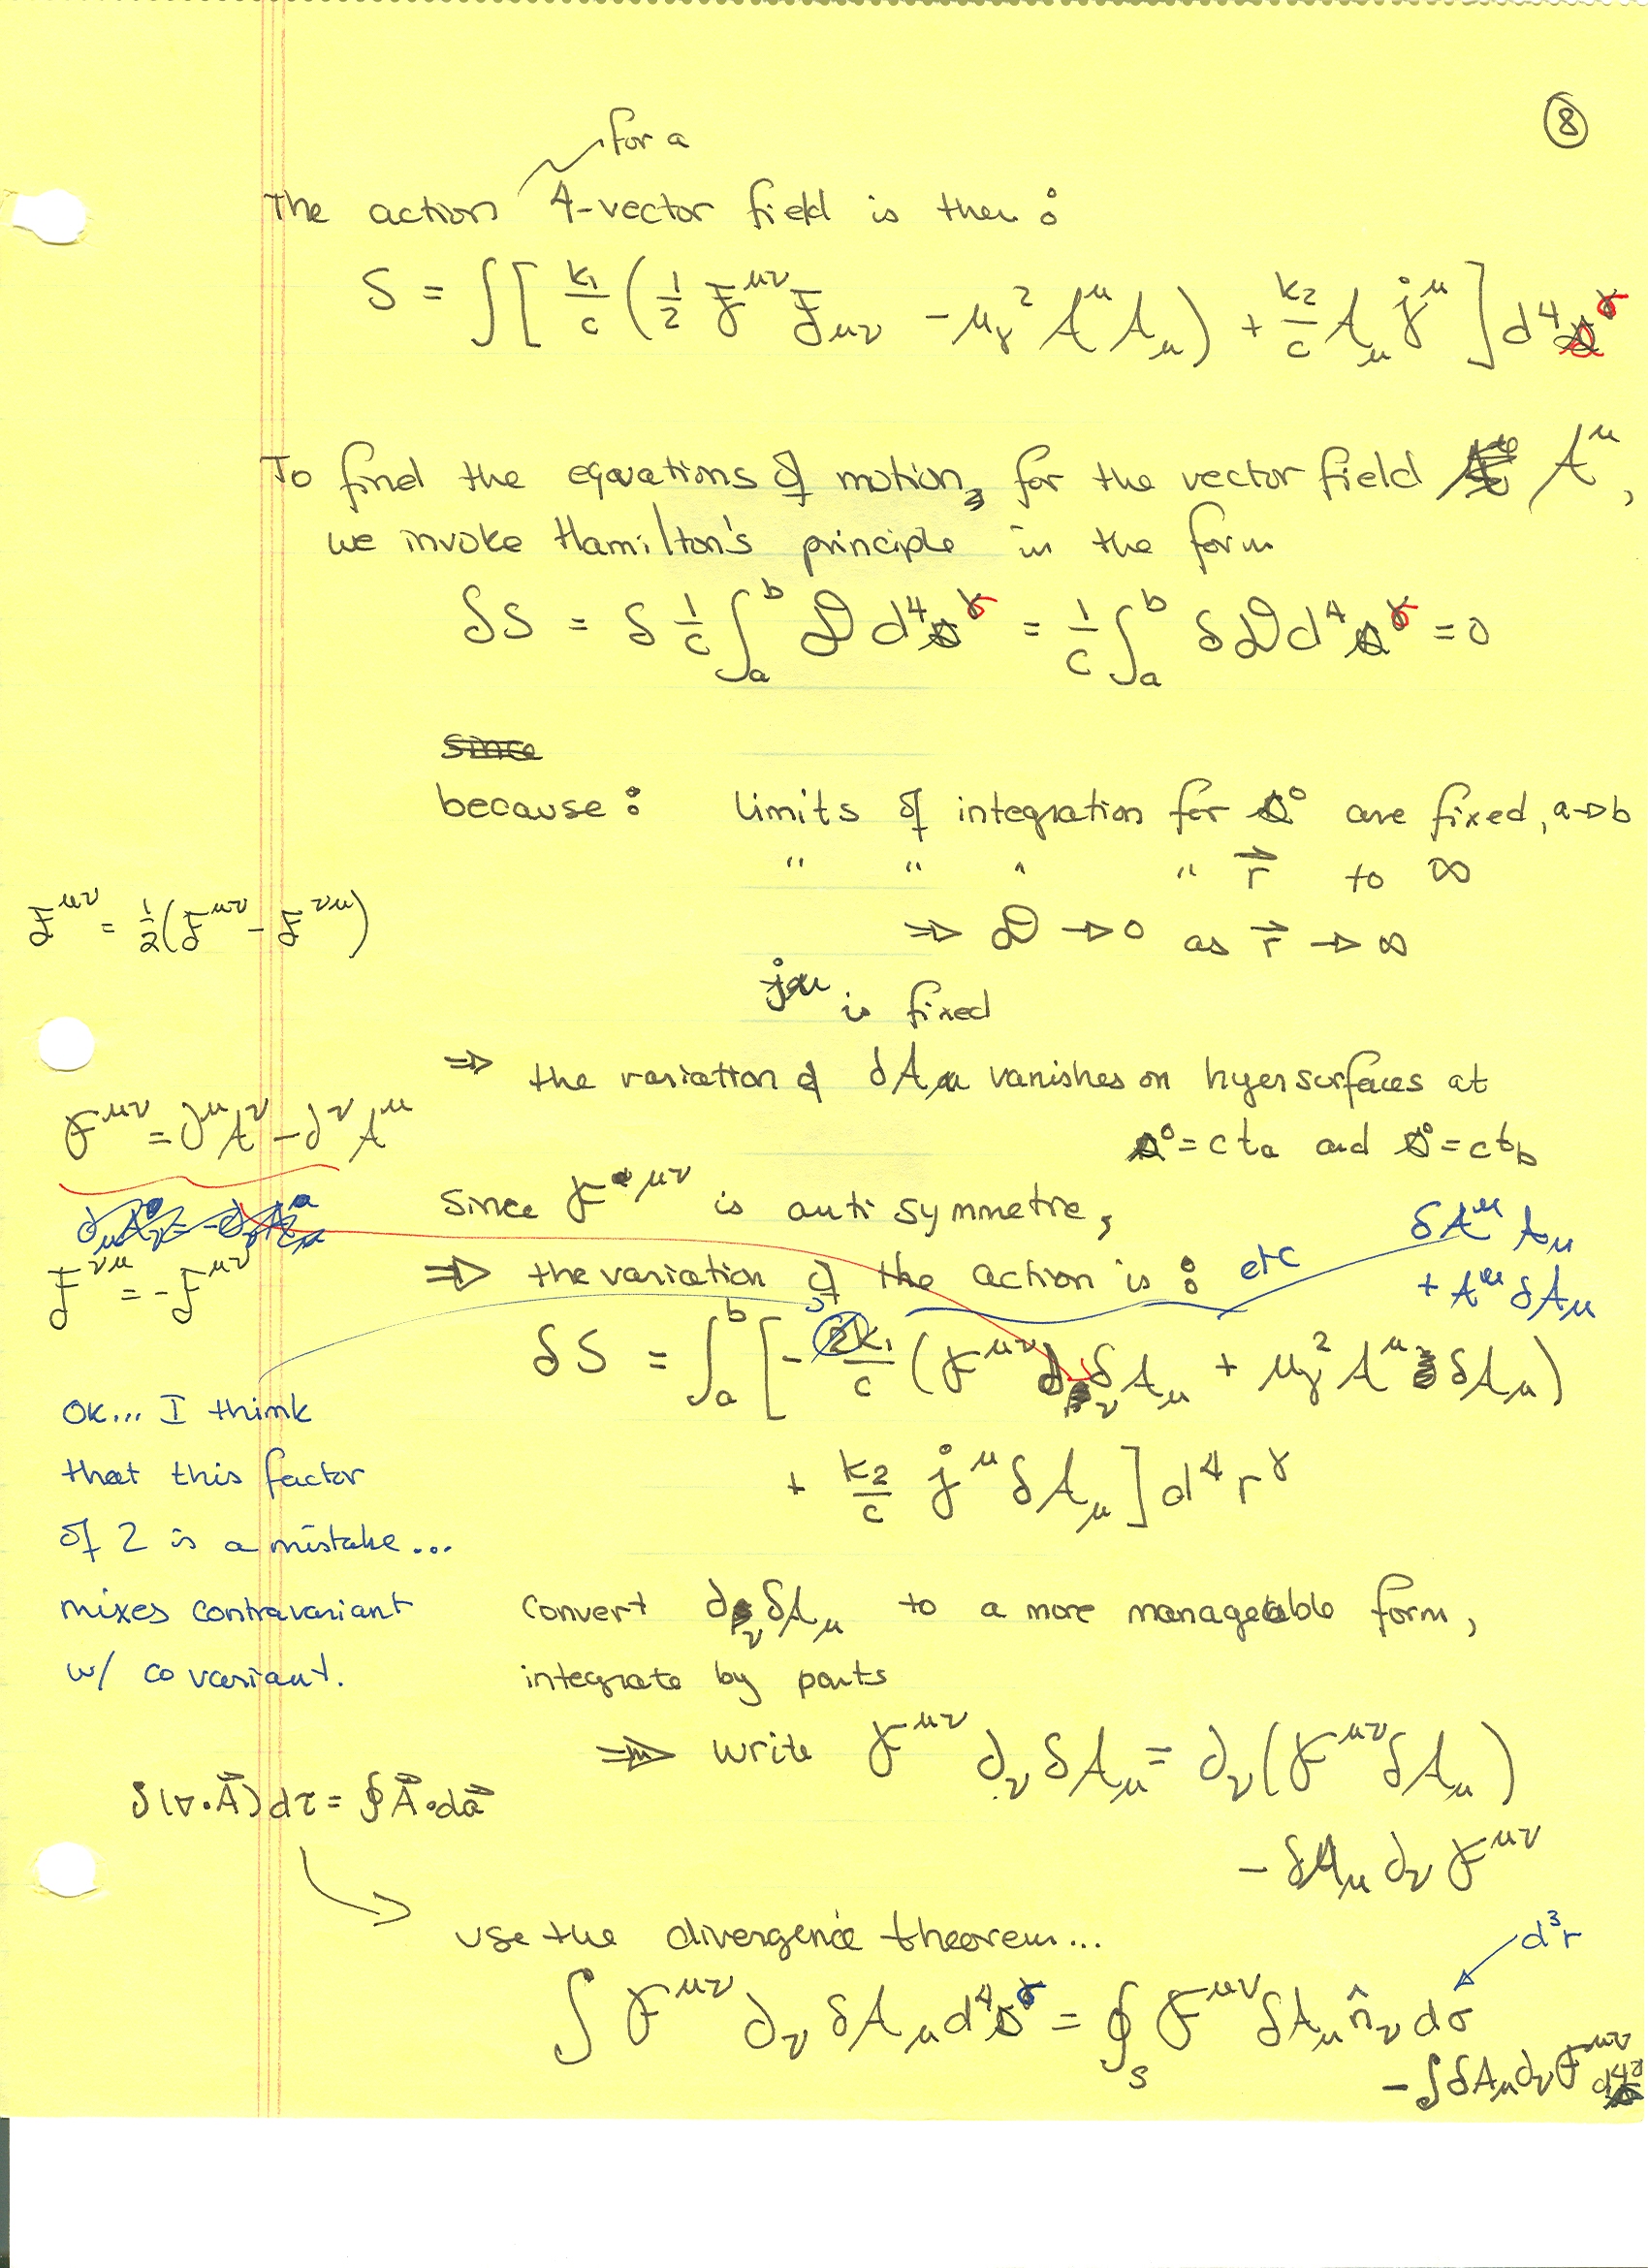 8
for a
The action 4-vector field is then :
S = ∫ [ k₁/c ( 1/2 F^μν F_μν - μ_γ² A^μ A_μ ) + k₂/c A_μ j^μ ] d⁴ r^γ
To find the equations of motion, for the vector field A^μ,
we invoke Hamilton's principle in the form
δS = δ 1/c ∫_a^b 𝓛 d⁴ r^γ = 1/c ∫_a^b δ𝓛 d⁴ r^γ = 0
since
because : limits of integration for r⁰ are fixed, a→b
" " " " r⃗ to ∞
F^μν = 1/2 (F^μν - F^νμ)
⇒ 𝓛 → 0 as r⃗ → ∞
j^μ is fixed
⇒ the variation of δA_μ vanishes on hyersurfaces at
r⁰ = ct_a and r⁰ = ct_b
F^μν = ∂^μ A^ν - ∂^ν A^μ
since F^μν is anti symmetric,
δA^μ A_μ
+ A^μ δA_μ
F^νμ = -F^μν
⇒ the variation of the action is : etc
δS = ∫_a^b [ - 2k₁/c ( F^μν ∂_ν δA_μ + μ_γ² A^μ δA_μ )
+ k₂/c j^μ δA_μ ] d⁴ r^γ
OK... I think
that this factor
of 2 is a mistake...
mixes contravariant
w/ covariant.
convert ∂_ν δA_μ to a more manageable form,
integrate by parts
⇒ write F^μν ∂_ν δA_μ = ∂_ν (F^μν δA_μ)
- δA_μ ∂_ν F^μν
∫(∇·A⃗) dτ = ∮ A⃗·da⃗
use the divergence theorem...
d³r
∫ F^μν ∂_ν δA_μ d⁴ r^γ = ∮_S F^μν δA_μ n̂_ν dσ
- ∫ δA_μ ∂_ν F^μν d⁴ r^γ